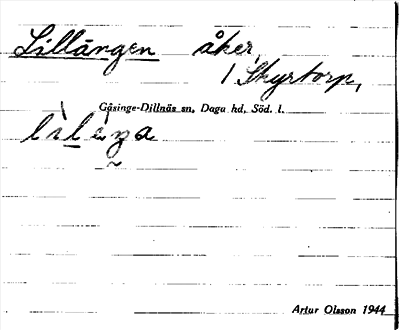 Lillängen åker,
/ Skyrtorp,
Gåsinge-Dillnäs sn, Daga hd, Söd. l.
Artur Olsson 1944